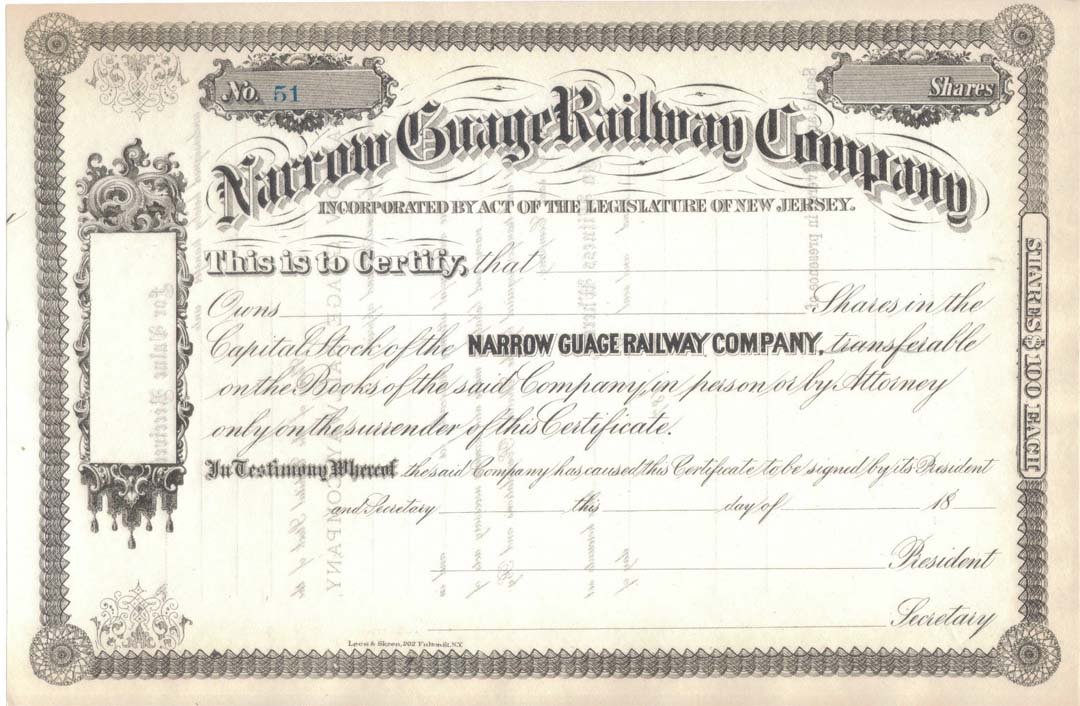 No. 51
Shares
Narrow Guage Railway Company
INCORPORATED BY ACT OF THE LEGISLATURE OF NEW JERSEY.
This is to Certify, that
Owns Shares in the
Capital Stock of the NARROW GUAGE RAILWAY COMPANY, transferable
on the Books of the said Company, in person or by Attorney
only on the surrender of this Certificate.
In Testimony Whereof the said Company has caused this Certificate to be signed by its President
and Secretary this day of 18
President
Secretary
SHARES $100 EACH